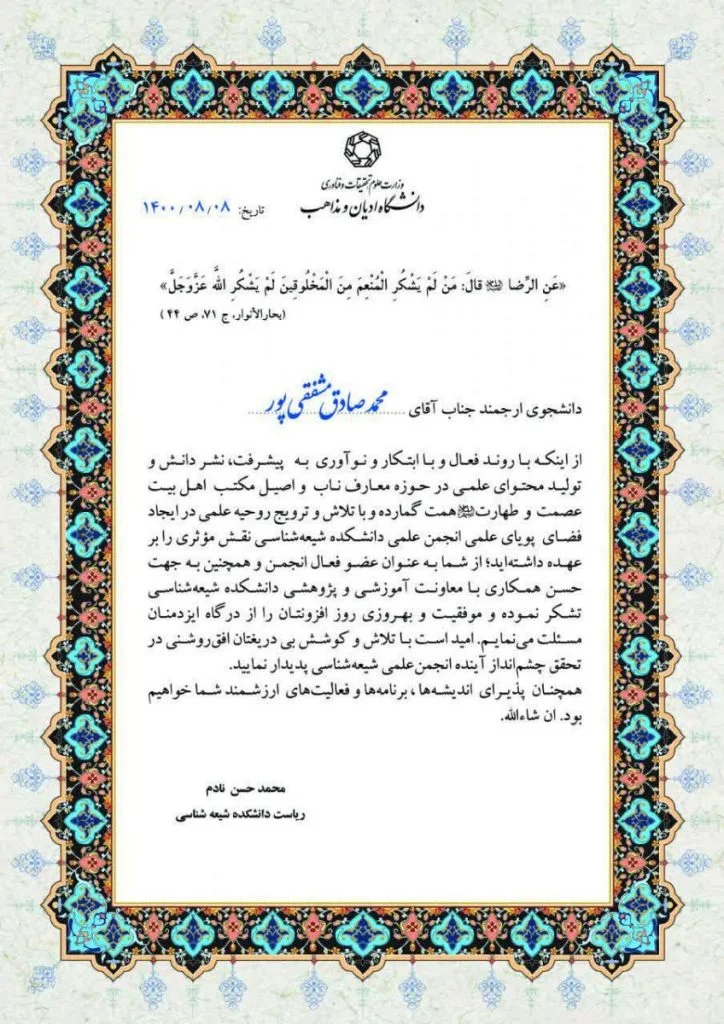 وزارت علوم تحقیقات و فناوری
دانشگاه ادیان و مذاهب
تاریخ: ۱۴۰۰/۰۸/۰۸
«عَنِ الرِّضا علیه‌السلام قالَ: مَنْ لَمْ یَشْکُرِ الْمُنْعِمَ مِنَ الْمَخْلُوقِینَ لَمْ یَشْکُرِ اللَّهَ عَزَّوَجَلَّ»
(بحارالأنوار، ج ۷۱، ص ۴۴)
دانشجوی ارجمند جناب آقای محمد صادق مشفقی پور
از اینکه با روند فعال و با ابتکار و نوآوری به پیشرفت، نشر دانش و
تولید محتوای علمی در حوزه معارف ناب و اصیل مکتب اهل بیت
عصمت و طهارت همت گمارده و با تلاش و ترویج روحیه علمی در ایجاد
فضای پویای علمی انجمن علمی دانشکده شیعه‌شناسی نقش مؤثری را بر
عهده داشته‌اید؛ از شما به عنوان عضو فعال انجمن و همچنین به جهت
حسن همکاری با معاونت آموزشی و پژوهشی دانشکده شیعه‌شناسی
تشکر نموده و موفقیت و بهروزی روز افزونتان را از درگاه ایزدمنان
مسئلت می‌نمایم. امید است با تلاش و کوشش بی دریغتان افق‌روشنی در
تحقق چشم‌انداز آینده انجمن‌علمی شیعه‌شناسی پدیدار نمایید.
همچنان پذیرای اندیشه‌ها، برنامه‌ها و فعالیت‌های ارزشمند شما خواهیم
بود. ان شاءالله.
محمد حسن نادم
ریاست دانشکده شیعه شناسی